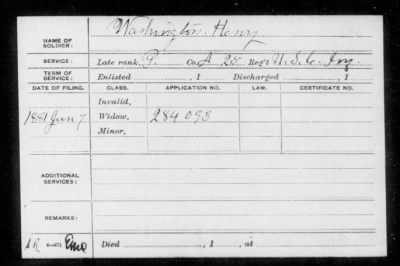 NAME OF SOLDIER: Washington, Henry
SERVICE: Late rank, P. Co. A, 25 Reg't U.S.C. Inf.
TERM OF SERVICE: Enlisted , 1 Discharged , 1
DATE OF FILING. CLASS. APPLICATION NO. LAW. CERTIFICATE NO.
Invalid,
1881 Jun 7 Widow, 284 093
Minor,
ADDITIONAL SERVICES:
REMARKS:
Died , 1 , at